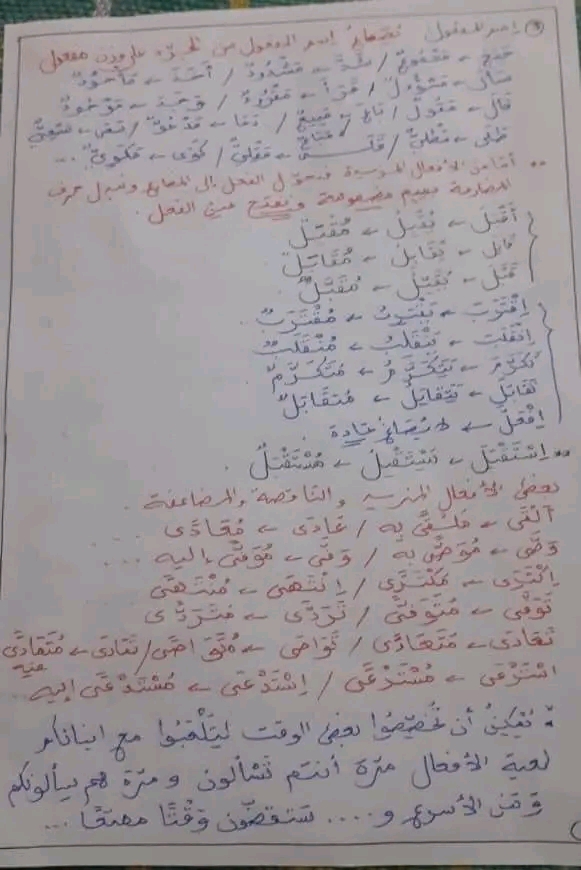 اسم المفعول يُصَاغُ اسم المفعول من المجرّد على وزن مفعول
فَتَحَ ← مَفْتُوحٌ / شَدَّ ← مَشْدُودٌ / أَخَذَ ← مَأْخُوذٌ
سَأَلَ ← مَسْؤُولٌ / قَرَأَ ← مَقْرُوءٌ / وَجَدَ ← مَوْجُودٌ
قَالَ ← مَقُولٌ / بَاعَ ← مَبِيعٌ / دَعَا ← مَدْعُوٌّ /
/ قَلَى ← مَقْلِيٌّ / كَوَى ← مَكْوِيٌّ ...
** أمّا من الأفعال المزيدة فنحوّل الفعل إلى المضارع ونبدل حرف
المضارعة بميم مضمومة ونفتح عين الفعل.
أَقْبَلَ ← يُقْبِلُ ← مُقْبَلٌ
قَابَلَ ← يُقَابِلُ ← مُقَابَلٌ
قَبَّلَ ← يُقَبِّلُ ← مُقَبَّلٌ
اِقْتَرَبَ ← يَقْتَرِبُ ← مُقْتَرَبٌ
اِنْقَلَبَ ← يَنْقَلِبُ ← مُنْقَلَبٌ
تَكَرَّمَ ← يَتَكَرَّمُ ← مُتَكَرَّمٌ
تَقَابَلَ ← يَتَقَابَلُ ← مُتَقَابَلٌ
اِفْعَلَّ ← لا يُصَاغُ عَادة.
** اِسْتَقْبَلَ ← يَسْتَقْبِلُ ← مُسْتَقْبَلٌ.
بعض الأفعال المزيدة والناقصة والمضاعفة
أَلْقَى ← به / عَادَى ← مُعَادًى ...
← مُوَصًّى به / ← إليه ...
اِكْتَرَى ← مُكْتَرًى / اِنْتَهَى ← مُنْتَهًى
تَوَفَّى ← مُتَوَفًّى / تَرَدَّى ← مُتَرَدًّى
تَعَادَى ← مُتَعَادًى / تَوَاصَى ← مُتَوَاصًى /
← / اِسْتَدْعَى ← مُسْتَدْعًى إليه...
* يُمْكِنُ أن تُخَصِّصُوا بعض الوقت لِتَلْعَبُوا مع ابنائكم
لعبة الأفعال مرّة أنتم تَسْألون ومرّة هم يسألونكم
وَمَن الأسرع و.... ستقضّون وَقْتًا ممتعًا ...